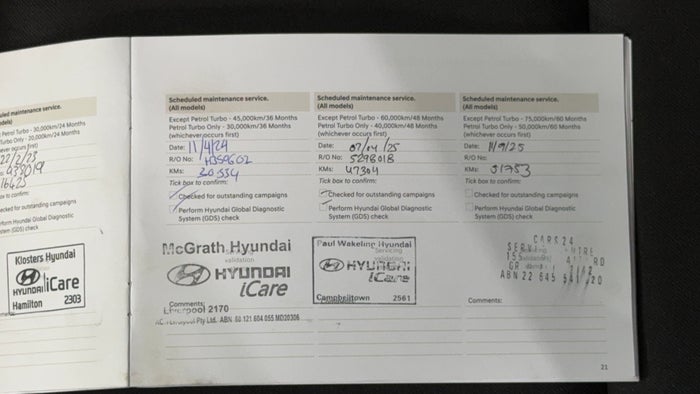 uled maintenance service.
dels)
Petrol Turbo - 30,000km/24 Months
Turbo Only - 20,000km/24 Months
ever occurs first)
22/2/23
438019
16425
to confirm:
cked for outstanding campaigns
orm Hyundai Global Diagnostic
stem (GDS) check
Klosters Hyundai
HYUNDAI iCare
Hamilton 2303
Scheduled maintenance service.
(All models)
Except Petrol Turbo - 45,000km/36 Months
Petrol Turbo Only - 30,000km/36 Months
(whichever occurs first)
Date: 11/4/24
R/O No:
KMs: 30534
Tick box to confirm:
Checked for outstanding campaigns
Perform Hyundai Global Diagnostic
System (GDS) check
McGrath Hyundai
validation
HYUNDAI
iCare
Comments:
Liverpool 2170
Pty Ltd. ABN 60 121 604 055 MD20306
Scheduled maintenance service.
(All models)
Except Petrol Turbo - 60,000km/48 Months
Petrol Turbo Only - 40,000km/48 Months
(whichever occurs first)
Date: 07/04/25
R/O No: 5298018
KMs: 47304
Tick box to confirm:
Checked for outstanding campaigns
Perform Hyundai Global Diagnostic
System (GDS) check
Paul Wakeling Hyundai
Servicing
validation
HYUNDAI
iCare
Campbelltown 2561
Scheduled maintenance service.
(All models)
Except Petrol Turbo - 75,000km/60 Months
Petrol Turbo Only - 50,000km/60 Months
(whichever occurs first)
Date: 11/9/25
R/O No:
KMs: 51753
Tick box to confirm:
Checked for outstanding campaigns
Perform Hyundai Global Diagnostic
System (GDS) check
CARS24
155 RD
ABN 22 645
Comments:
21